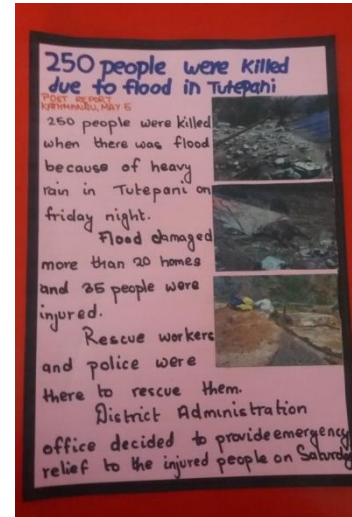 250 people were killed
due to flood in Tutepani
POST REPORT
KATHMANDU, MAY 5
250 people were killed
when there was flood
because of heavy
rain in Tutepani on
friday night.
Flood damaged
more than 20 homes
and 35 people were
injured.
Rescue workers
and police were
there to rescue them.
District Administration
office decided to provide emergency
relief to the injured people on Saturday